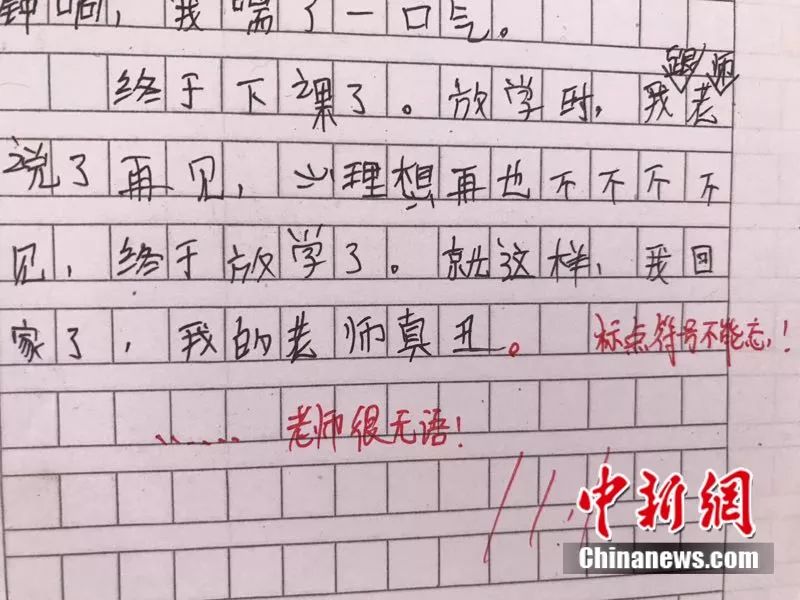 钟响，我喘了一口气。
跟师
终于下课了。放学时，我老
说了再见，心理想再也不不不不
见，终于放学了。就这样，我回
家了，我的老师真丑。 标点符号不能忘！
…… 老师很无语！
11.1
中新網
Chinanews.com